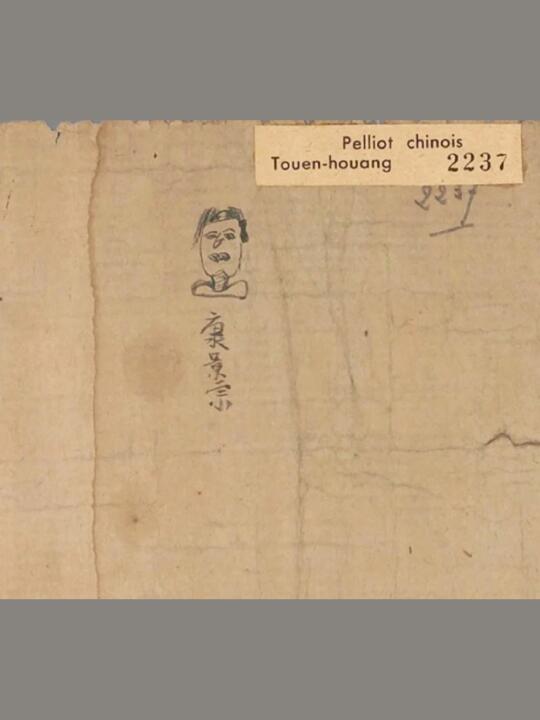 Pelliot chinois
Touen-houang 2237
2237
康景宗